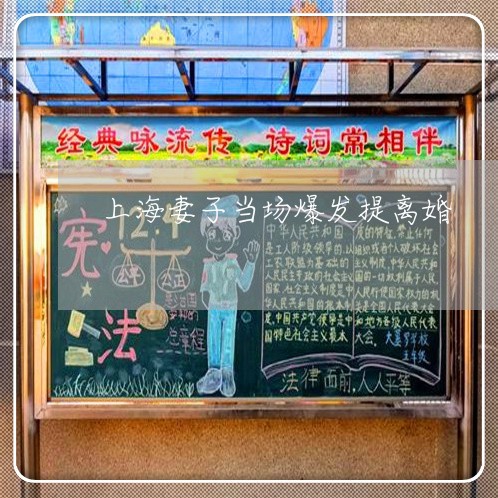 经典咏流传 诗词常相伴
上海妻子当场爆发提离婚
12.4
宪法
公平
公正
总章程
中华人民共和国
是工人阶级领导的,以
工农联盟为基础的
人民民主专政的社会主义
国家,社会主义制度是中
华人民共和国的根本制
度,中国共产党领导是中
国特色社会主义最本
质的特征,禁止任何
组织或者个人破坏社会
主义制度,中华人民共和
国的一切权利属于人民,
人民行使国家权力的机
关是全国人民代表大会
和地方各级人民代表
大会,
五年级
法律面前,人人平等